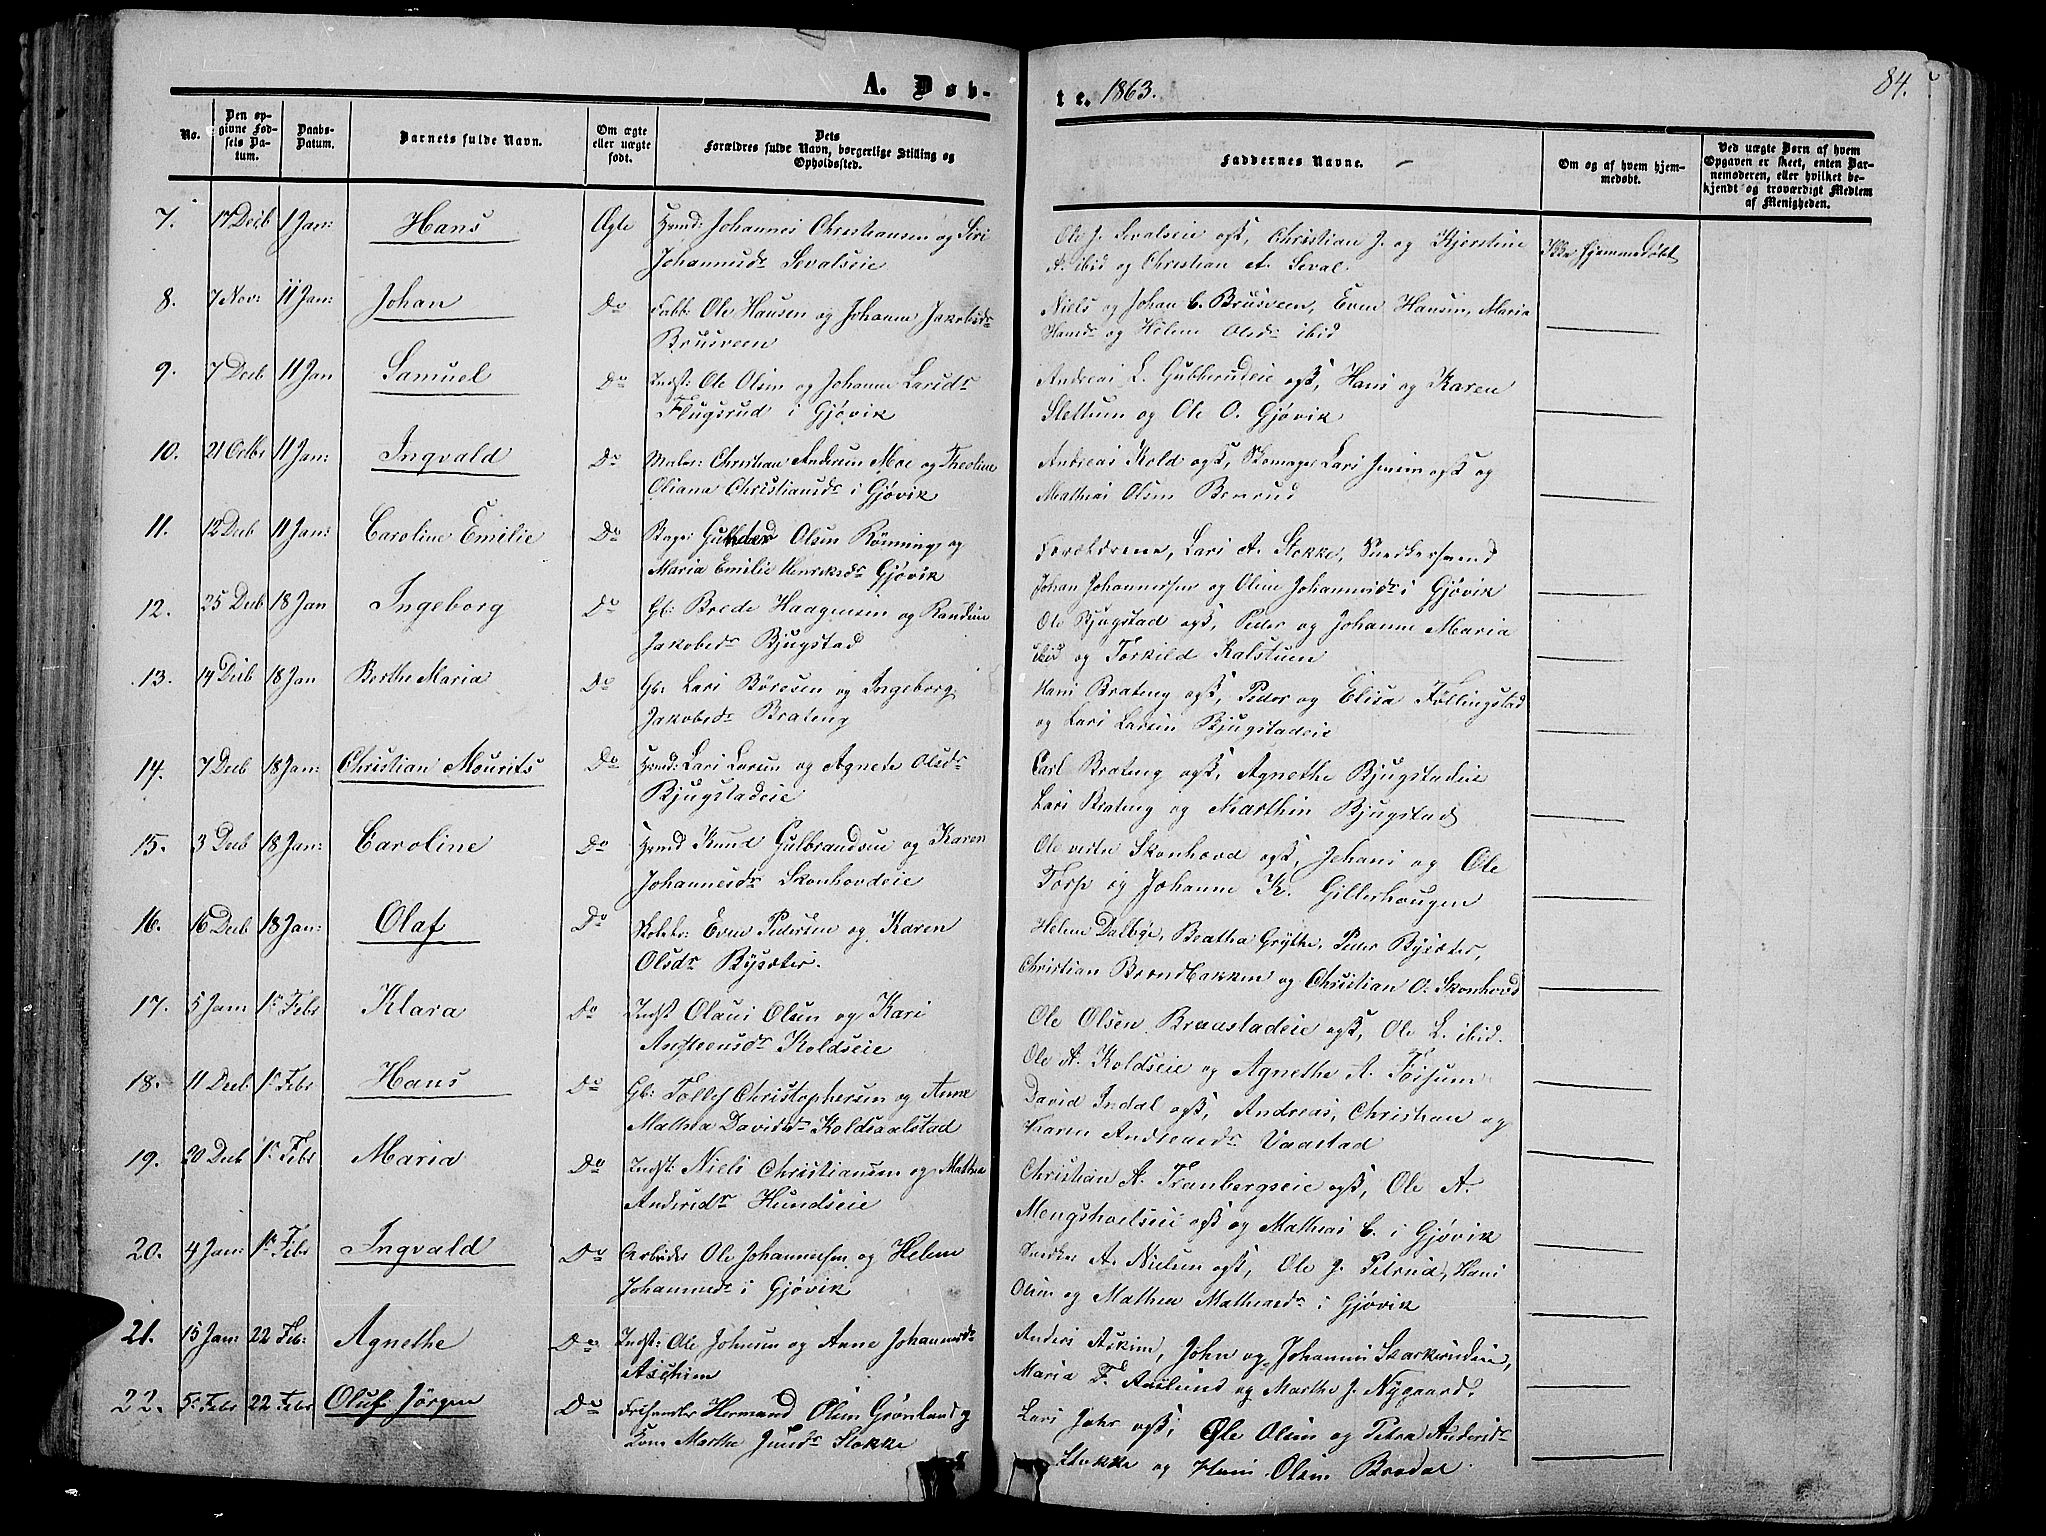 A. Døb-
te. 1863.
84.
No.
Den op-
givne Fød-
sels Da-
tum.
Daabs-
Datum.
Barnets fulde Navn.
Om ægte
eller uægte
født.
Dets
Forældres fulde Navn, borgerlige Stilling og
Opholdssted.
Faddernes Navne.
Om og af hvem hjem-
medøbt.
Ved uægte Børn af hvem
Opgaven er skeet, enten Bar-
nemoderen, eller hvilket be-
kjendt og troværdigt Medlem
af Menigheden.
7. 17 Decb 1 Jan: Hans Ægte Huusd: Johannes Christiansen og Siri
Johannesdr Sevalseie
Ole J. Sevalseie ogß, Christian J. og Kjerstine
A. ibid og Christian A. Seval.
Ikke hjemmedøbt
8. 7 Nov: 11 Jan: Johan Do Fabb: Ole Hansen og Johanne Jakobsdr
Brusveen
Niels og Johan C. Brusveen, Even Hansen, Maria
Hansdr og Helene Olsdr ibid
9. 7 Decb 11 Jan Samuel Do Indst: Ole Olsen og Johanne Larsdr
Flugsrud i Gjøvik
Andreas L. Gubberudeie ogß, Hans og Karen
Slettum og Ole O. Gjøvik
10. 21 Octbr 11 Jan: Ingvald Do Maler: Christian Andersen Moe og Theoline
Oliana Christiansdr i Gjøvik
Andreas Kold ogß, Skomager Lars Jensen ogß og
Mathias Olsen Bonrud
11. 12 Decb 11 Jan: Caroline Emilie Do Bager Olsen Rönning og
Maria Emilie Henriksdr Gjøvik
Forældrene, Lars A. Stokke, Snedkersvend
Johan Johannessen og Oline Johannesdr i Gjøvik
12. 25 Decb 18 Jan Ingeborg Do Gb: Brede Haagensen og Randine
Jakobsdr Bjugstad
Ole Bjugstad ogß, Peder og Johanne Maria
ibid og Torkild Kalstuen
13. 14 Decb 18 Jan Berthe Maria Do Gb: Lars Böresen og Ingeborg
Jakobsdr Brateng
Hans Brateng ogß, Peder og Elisa Föllingstad
og Lars Larsen Bjugstadeie
14. 7 Decb 18 Jan: Christian Mourits Do Huusd: Lars Larsen og Agnete Olsdr
Bjugstadeie
Carl Brateng ogß, Agnethe Bjugstadeie
Lars Brateng og Marthin Bjugstad
15. 3 Decb 18 Jan: Caroline Do Huusd Knud Gulbrandsen og Karen
Johannesdr Skonhovdeie
Ole vestre Skonhovd ogß, Johans og Ole
Torp og Johanne K. Gillerhaugen
16. 16 Decb 18 Jan: Olaf Do Skolelr: Even Pedersen og Karen
Olsdr Bysæter.
Helene Dalbye, Beatha Grythe, Peder Bysæter,
Christian Brændbakken og Christian O. Skonhovd
17. 5 Jan 1r Febr Klara Do Indst Olaus Olsen og Kari
Andreasdr Koldseie
Ole Olsen Braastadeie ogß, Ole L. ibid.
Ole A. Koldseie og Agnethe A. Forsum
18. 11 Decb. 1r Febr Hans Do Gb: Tollef Christophersen og Anne
Mathea Davidsdr Koldsaalstad
David Indal ogß, Andreas, Christian og
Karen Andreasdr Vaastad
19. 20 Decb 1r Febr Maria Do Indst: Niels Christiansen og Mathea
Andersdr Hundseie
Christian A. Tranbergseie ogß, Ole A.
Mengshoelseie ogß og Mathias C. i Gjøvik
20. 4 Jan: 1r Febr Ingvald Do Arbeider Ole Johannessen og Helene
Johannesdr i Gjøvik
Snedker A. Nielsen ogß, Ole J. Petrud, Hans
Olsen og Mathea Matheasdr i Gjøvik
21. 15 Jan: 22 Feb: Agnethe Do Indst: Ole Johnsen og Anne Johannesdr
Aschim
Anders Askim, John og Johannes Skarkerudeie,
Maria F. Aaslund og Marthe J. Nygaard.
22. 5r Febr 22 Febr Oluf Jörgen Do Hermand Olsen Grønland og
Kone Martha Jensdr Stokke
Lars Jahr ogß, Ole Olsen og Petra Andersdr
Stokke og Hans Olsen Bredal